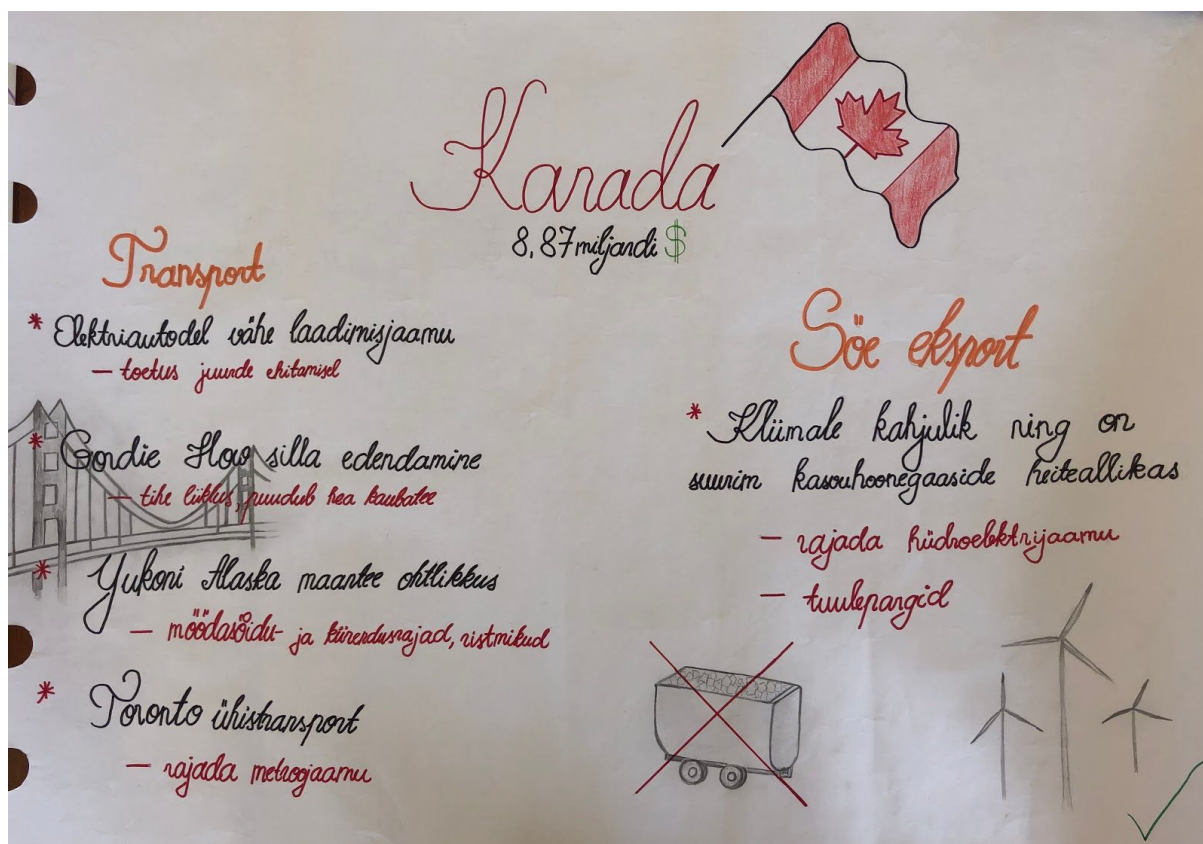 Kanada
8,87 miljardi $
Transport
* Elektriautodel vähe laadimisjaamu
— toetus juurde ehitamisel
* Gordie How silla edendamine
— tihe liiklus, puudub hea kaubatee
* Yukoni Alaska maantee ohtlikkus
— möödasõidu- ja kiirendusrajad, ristmikud
* Toronto ühistransport
— rajada metroojaamu
Söe eksport
* Kliimale kahjulik ning on
suurim kasvuhoonegaaside heiteallikas
— rajada hüdroelektrijaamu
— tuulepargid